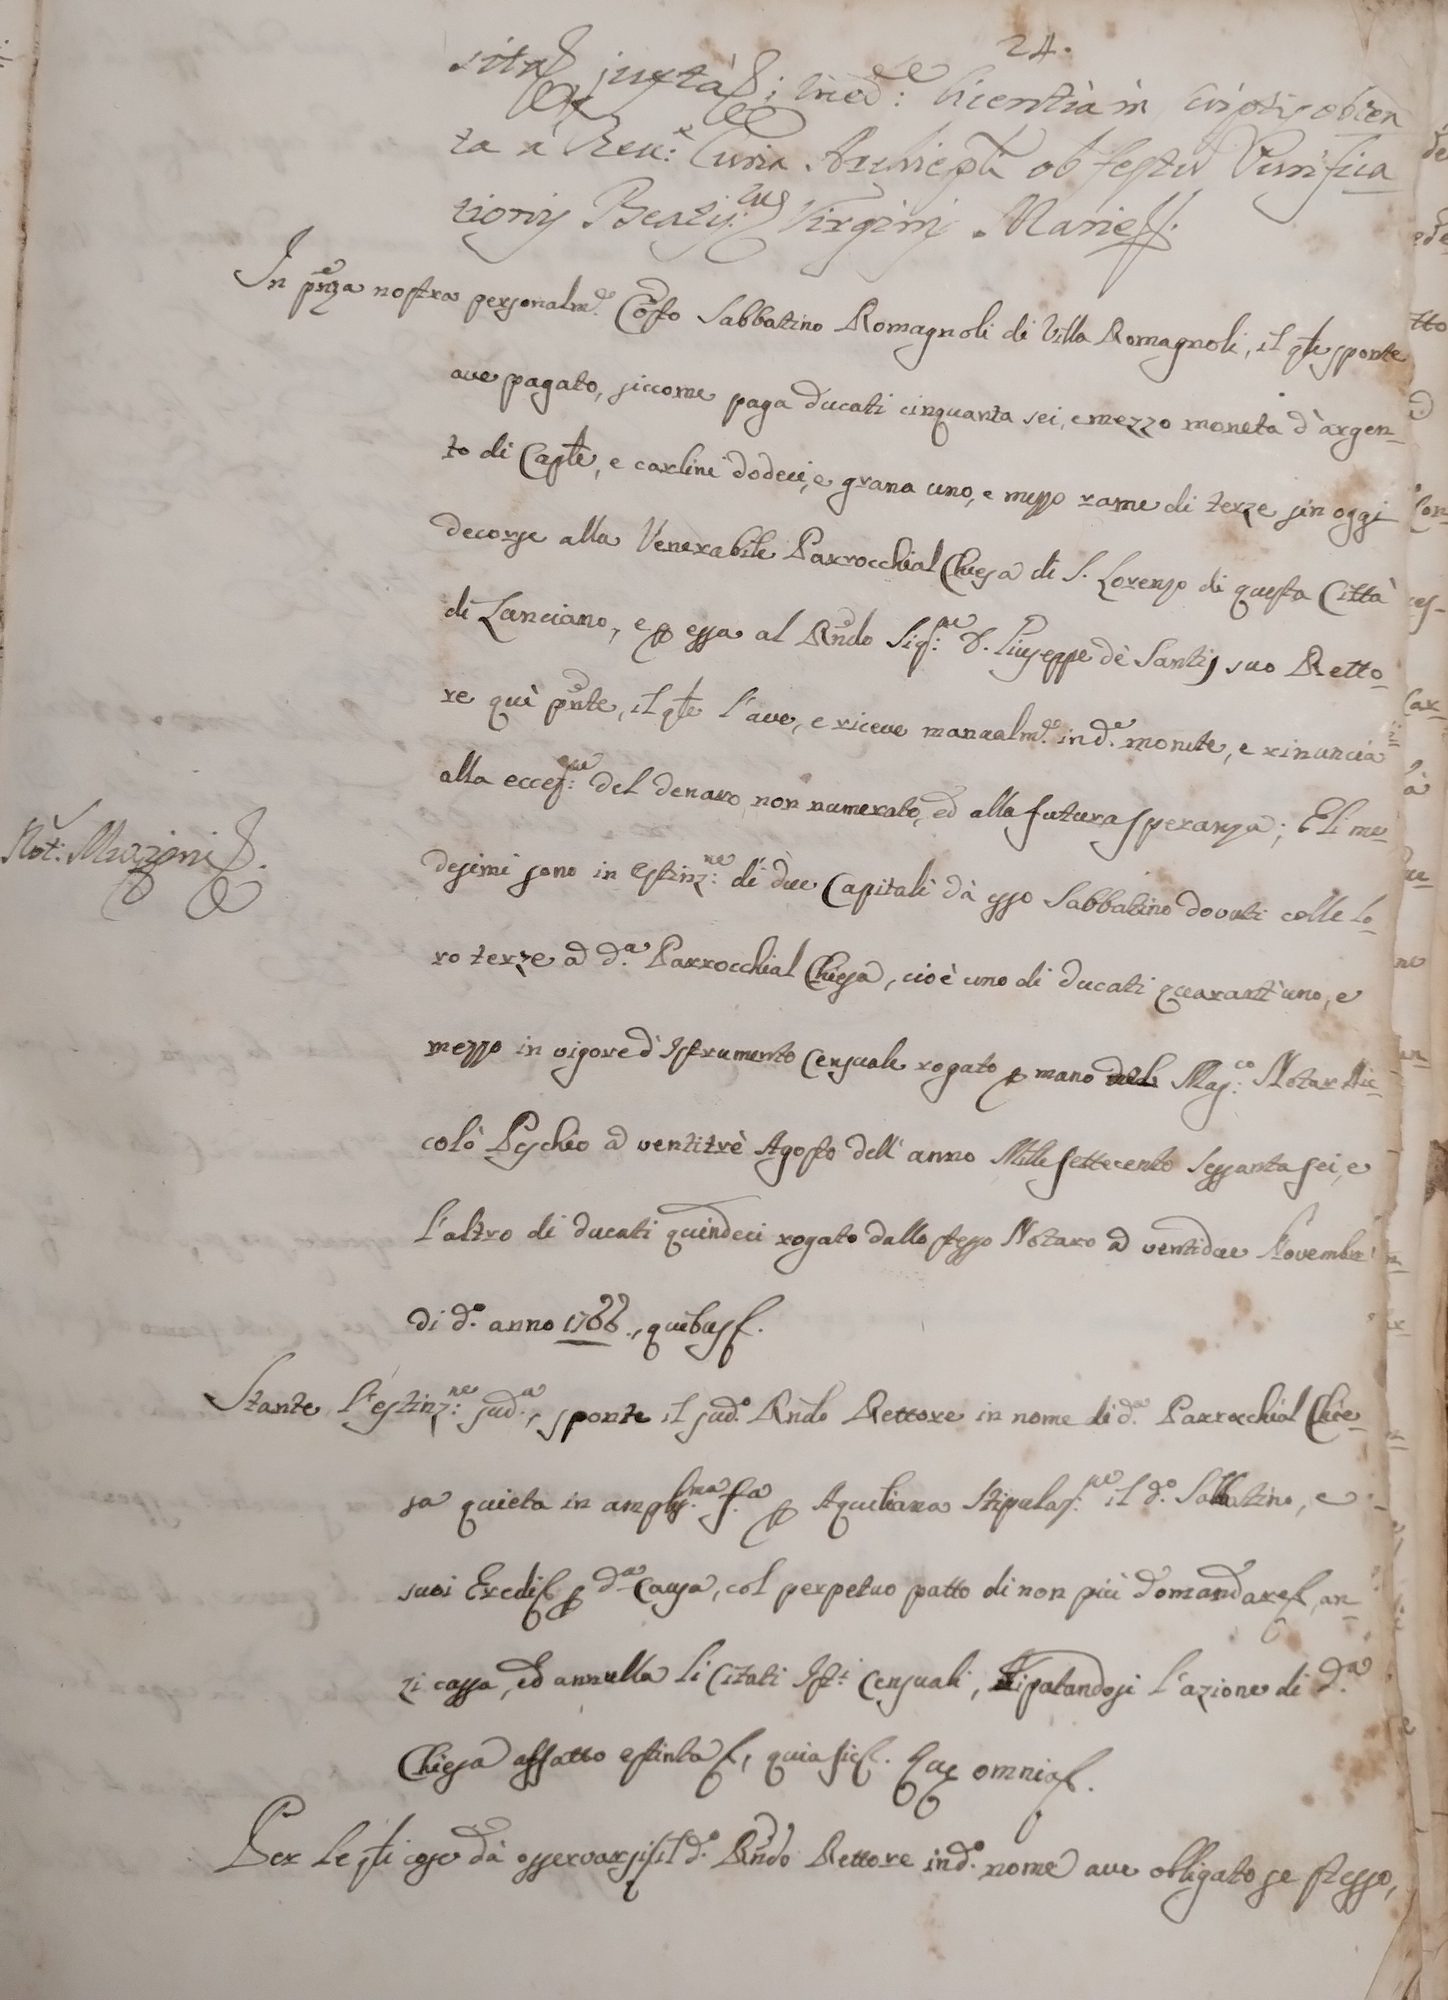 24.
sita juxta; med: licentia in scriptis obten
ta a Reu: Curia Archiepli ob festu Purifica
tionis Beatis: Virginis Marie
In pnza nostra personalm.e Costo Sabbatino Romagnoli di Villa Romagnoli, il qle sponte
ave pagato, siccome paga ducati cinquanta sei, e mezzo moneta d'argen-
to di Caple, e carlini dodeci, e grana uno, e mezzo rame di terze sin oggi
decorse alla Venerabile Parrocchial Chiesa di S. Lorenzo di questa Città
di Lanciano, e p essa al Rndo Sig:re D. Giuseppe dè Santis suo Retto-
re quì pnte, il qle l'ave, e riceve manualm.e in d.e monete, e rinuncia
alla eccez:ne del denaro non numerato, ed alla futura speranza; E li me
desimi sono in estinz:ne di due Capitali dà esso Sabbatino dovuti colle lo-
ro terze a d.a Parrocchial Chiesa, cioè uno di ducati quarant'uno, e
mezzo in vigore d'Istrumento Censuale rogato p mano del Mag:co Notar Nic-
colò Peschio a ventitrè Agosto dell'anno Mille settecento sessanta sei, e
l'altro di ducati quindeci rogato dallo stesso Notaro a ventidue Novembre
di d.o anno 1766., quibus.
Not: Muzioni
Stante l'estinz:ne sud.a, sponte il sud.o Rndo Rettore in nome di d.a Parrocchial Chie-
sa quieta in ampliss:ma f.a p Aquiliana Stipulaz:ne il d.o Sabbatino, e
suoi Eredi p d.a Causa, col perpetuo patto di non più domandare, an-
zi cassa, ed annulla li Citati Ist:i Censuali, stipulandosi l'azione di d.a
Chiesa affatto estinta, quia sic. Quae omnia.
Per le qli cose dà osservarsi il d.o Rndo Rettore in d.o nome ave obligato se stesso,